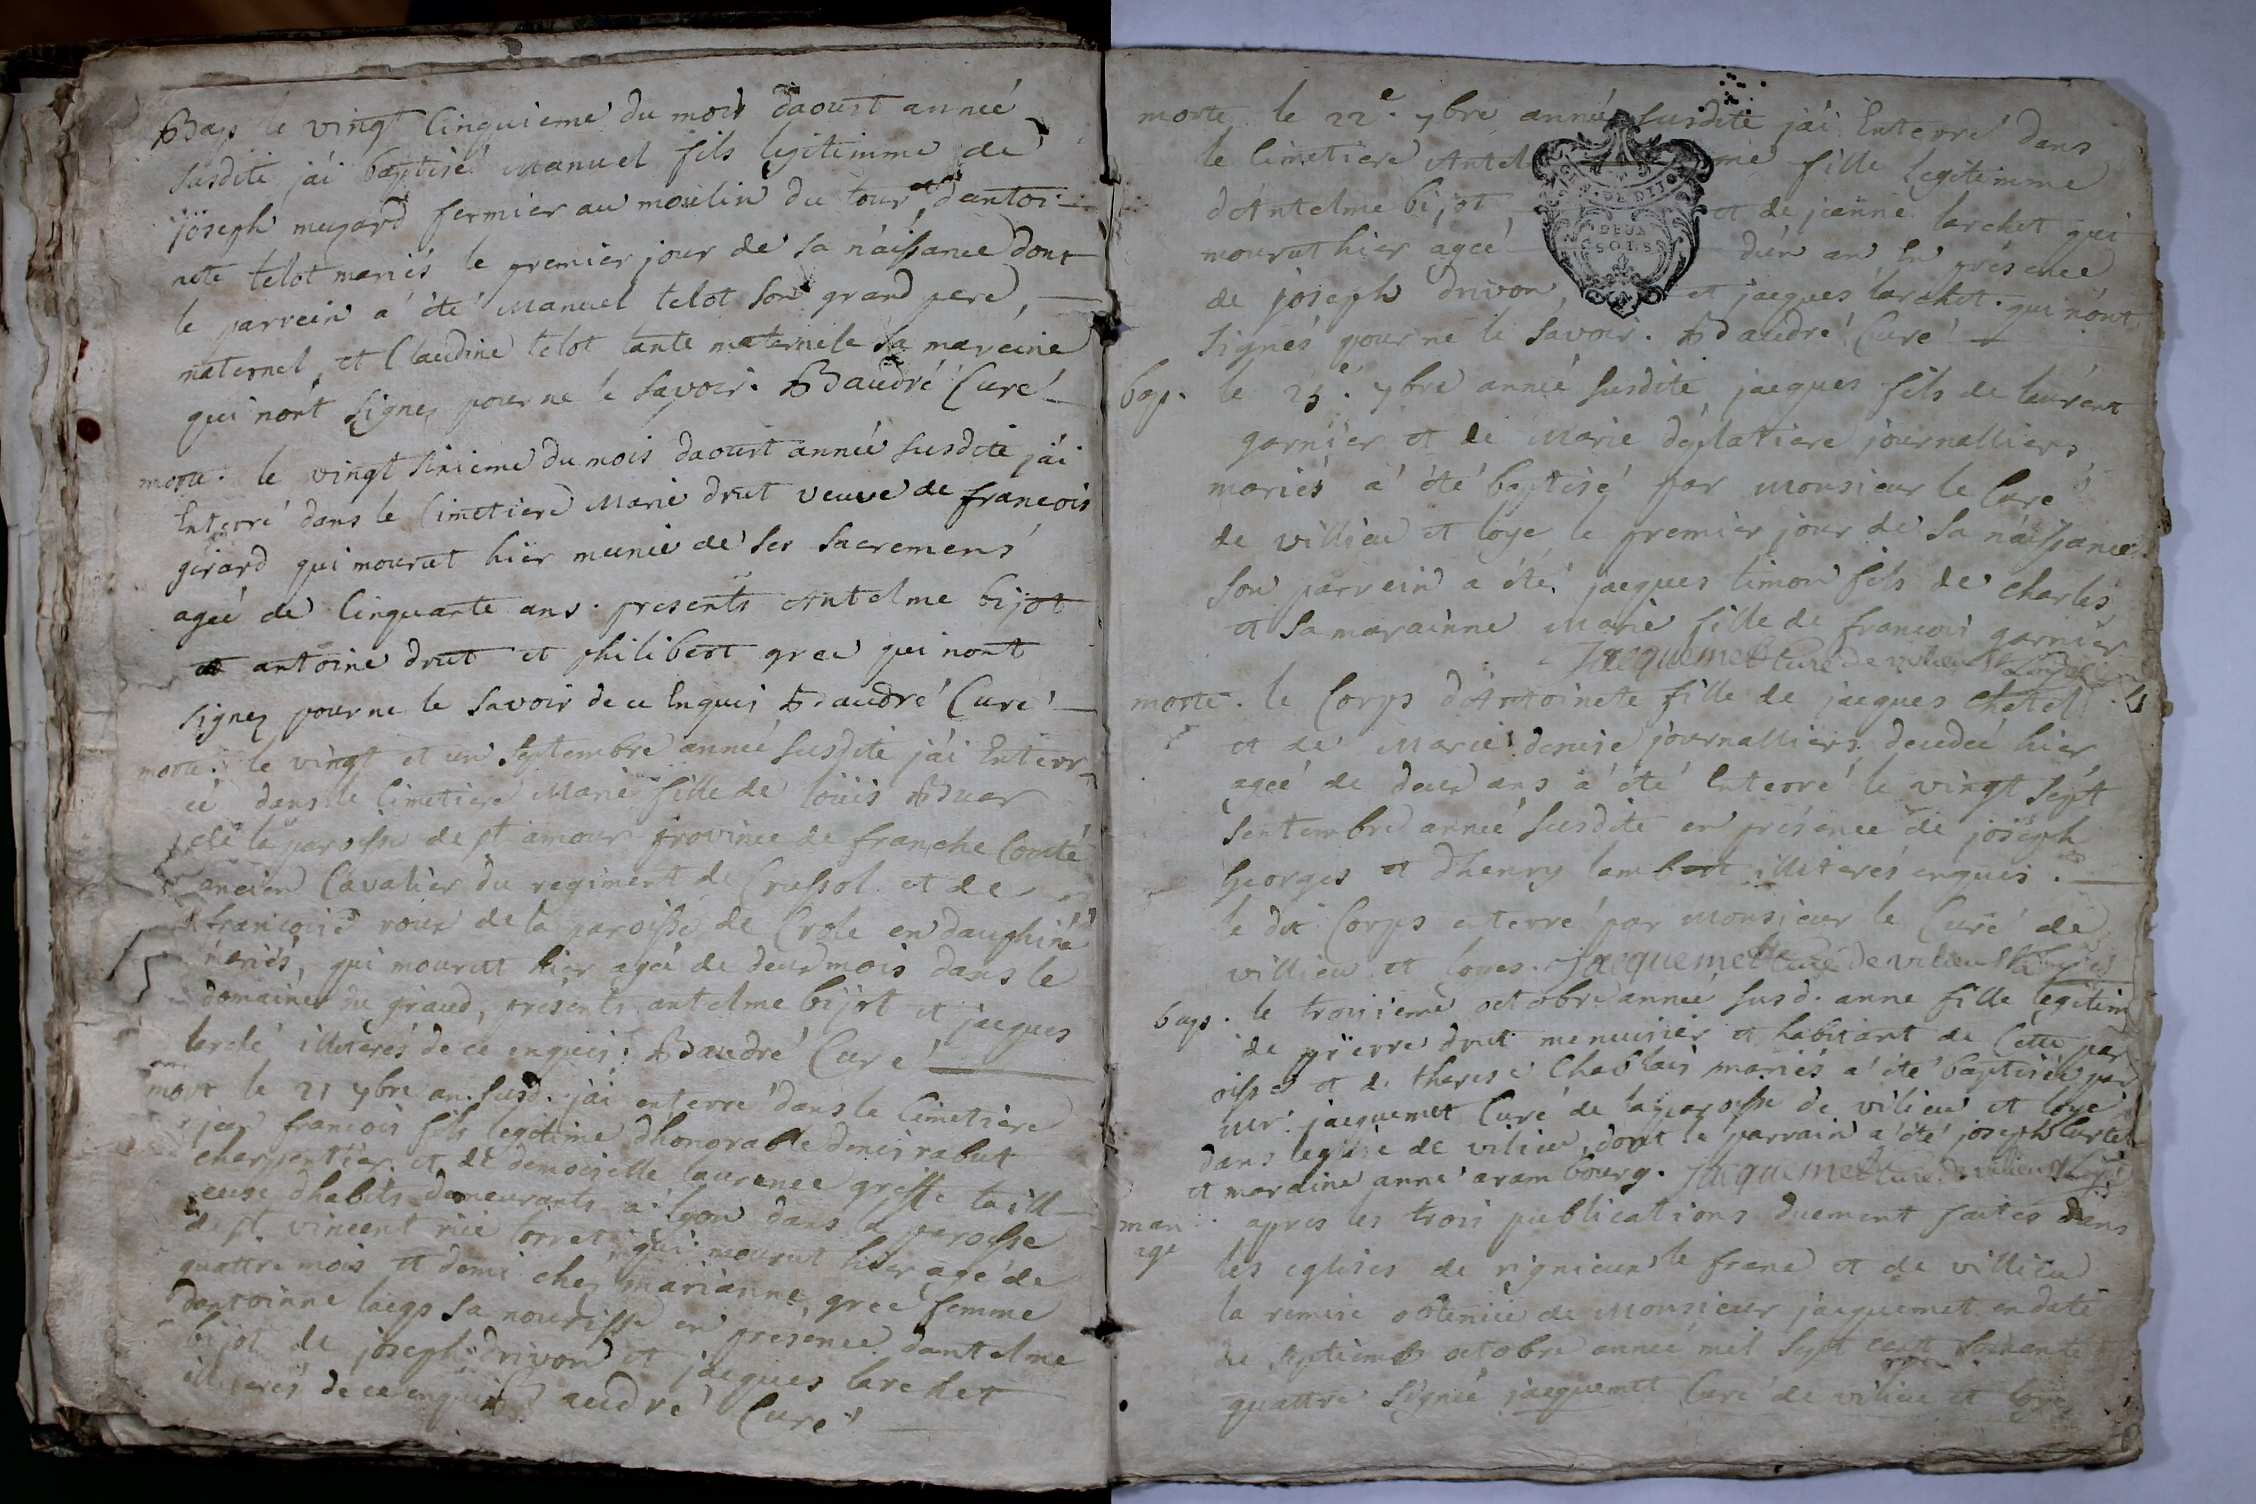 Bap le vingt Cinquieme du mois daoust anneé
susdite j'ái baptisé Manuel fils legitimme de
joseph mugard fermier au moulin du tour et dantoi-
nete telot mariés le premier jour de sa náissance dont
le parrein a été Manuel telot son grand pere,
maternel, et Claudine telot tante maternele sa mareine
qui nont signez pour ne le savoir. Baudré Curé
morte. le vingt sixieme du mois daoust anneé susdite j'ái
Enterré dans le Cimetiere Marie drut veuve de francois
girard qui mourut hiér munie de ses sacremens
ageé de Cinquante ans. presents Antelme bijot
et antoine drut et philibert gree qui nont
signez pour ne le savoir de ce Enquis Baudré Curé
morte. le vingt et un septembre anneé susdite j'ái Enterr
eé dans le Cimetiere Marie fille de loüis
de la paroisse de st amour province de franche Comté
ancien Cavalier du regiment de Crussol et de
francoise roux de la paroisse de Crole en dauphiné
mariés, qui mourut hier ageé de deux mois dans le
domaine du giraud, présents antelme bijot et jacques
larché illiterés de ce enquis. Baudré Curé
mort le 21 7bre an. susd. j'ái enterré dans le Cimetiere
jean francois fils legitime dhonorable denis rabut
charpentier et de demoiselle laurence greffe taill-
euse dhabits demeurants a lyon dans la paroisse
de st. vincent rüe torret qui mourut hier agé de
quattre mois et demi chez marianne gree femme
dantoinne laegs sa nourisse en présence dantelme
bijot de joseph drivon et jacques larchet
illiterés de ce enquis Baudré Curé
morte le 22e. 7bre anneé susdite j'ái Enterré dans
le Cimetiere Antel me fille legitimme
d'Antelme bijot, et de jeanne larchet qui
mourut hier ageé dún an En présence
de joseph drivon, et jacques larchet. qui n'ont
signés pour ne le savoir. Baudré Curé
DEUX
SOLS
bap. le 25e. 7bre anneé susdite jacques fils de laurent
garnier et de Marie déplatiere journalliers
mariés a été baptisé par Monsieur le Curé
de villieu et loye le premier jour de sa náissance.
son parrein a été jacques timon fils de charles
et sa marainne Marie fille de francois garnier
Jacquemet curé de vilieu et
morte. le Corps d'Antoinete fille de jacques chatel
et de Marie denise journalliers decedeé hier
ageé de deux ans a été Enterré le vingt sept
sentembre anneé susdite en présence de joseph
Georges et dhenry lambert illiterés enquis.
le dit Corps enterré par Monsieur le Curé de
villieu et loyes. Jacquemet curé de vilieu et loyes
bap. le troisieme octobre anneé susd. anne fille legitim
de piërre drut menuisier et habitant de Cette par
oisse et de therese Chablais mariés a été baptiseé par
mr. jacquemet Curé de la paroisse de vilieu et loye
dans leglise de vilieu, dont le parrain a été joseph
et maraine anne arambourg. Jacquemet curé de vilieu et loyes
mari
age apres les trois publications duement faites dans
les eglises de rignieux le franc et de villieu
la remise obtenüe de Monsieur jacquemet en date
du septieme octobre anneé mil sept cent soixante
quattre signeé jacquemet Curé de vilieu et loye